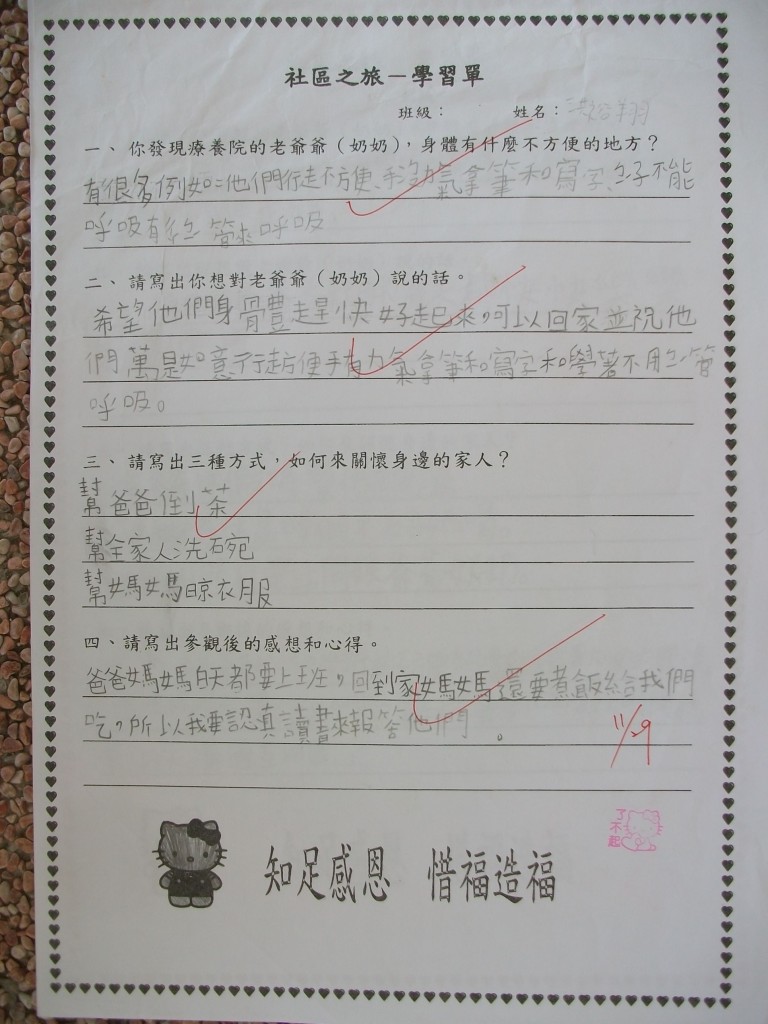 社區之旅－學習單
班級： 姓名：
一、你發現療養院的老爺爺（奶奶），身體有什麼不方便的地方？
有很多例如：他們行走不方便、手沒力氣拿筆和寫字、不能
呼吸有 管來呼吸
二、請寫出你想對老爺爺（奶奶）說的話。
希望他們身體趕快好起來，可以回家並祝他
們萬是如意，行走方便手有力氣拿筆和寫字和學著不用 管
呼吸。
三、請寫出三種方式，如何來關懷身邊的家人？
幫爸爸倒茶
幫全家人洗碗
幫媽媽晾衣服
四、請寫出參觀後的感想和心得。
爸爸媽媽白天都要上班，回到家媽媽還要煮飯給我們
吃，所以我要認真讀書來報答他們。
11/29
了不起
知足感恩 惜福造福